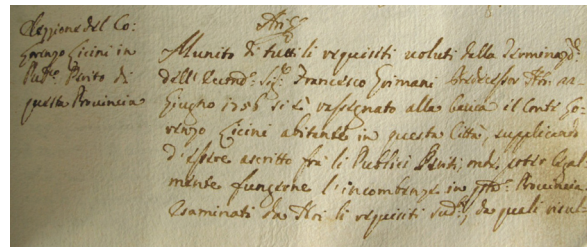 Elezzione del Co:
Lorenzo Licini in
Pub:co Perito di
questa Provincia
Noi &c
Munito di tutti li requisiti voluti dalla Terminaz:e
dell' Eccell:mo Sig:r Francesco Grimani Predecessor N'ri
Giugno 1756 si è rassegnato alla banca il Conte Lo-
renzo Licini abitante in questa Città, supplicando
d'essere ascritto frà li Publici Periti, onde poter legal-
mente fungere l'incombenze in q'ta Provincia
Esaminati da Noi li requisiti sud:ti, da quali risul-